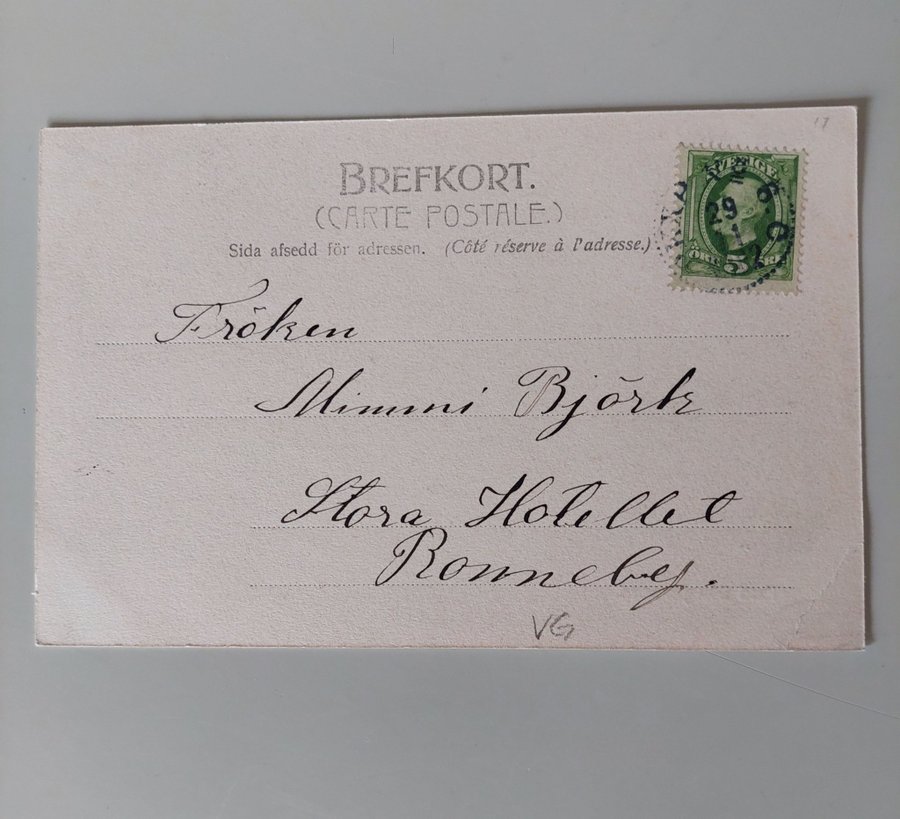 17
BREFKORT.
(CARTE POSTALE.)
Sida afsedd för adressen. (Côté réserve à l'adresse.)
SVERIGE
29
1
5
Fröken
Mimmi Björk
Stora Hotellet
Ronneby.
VG